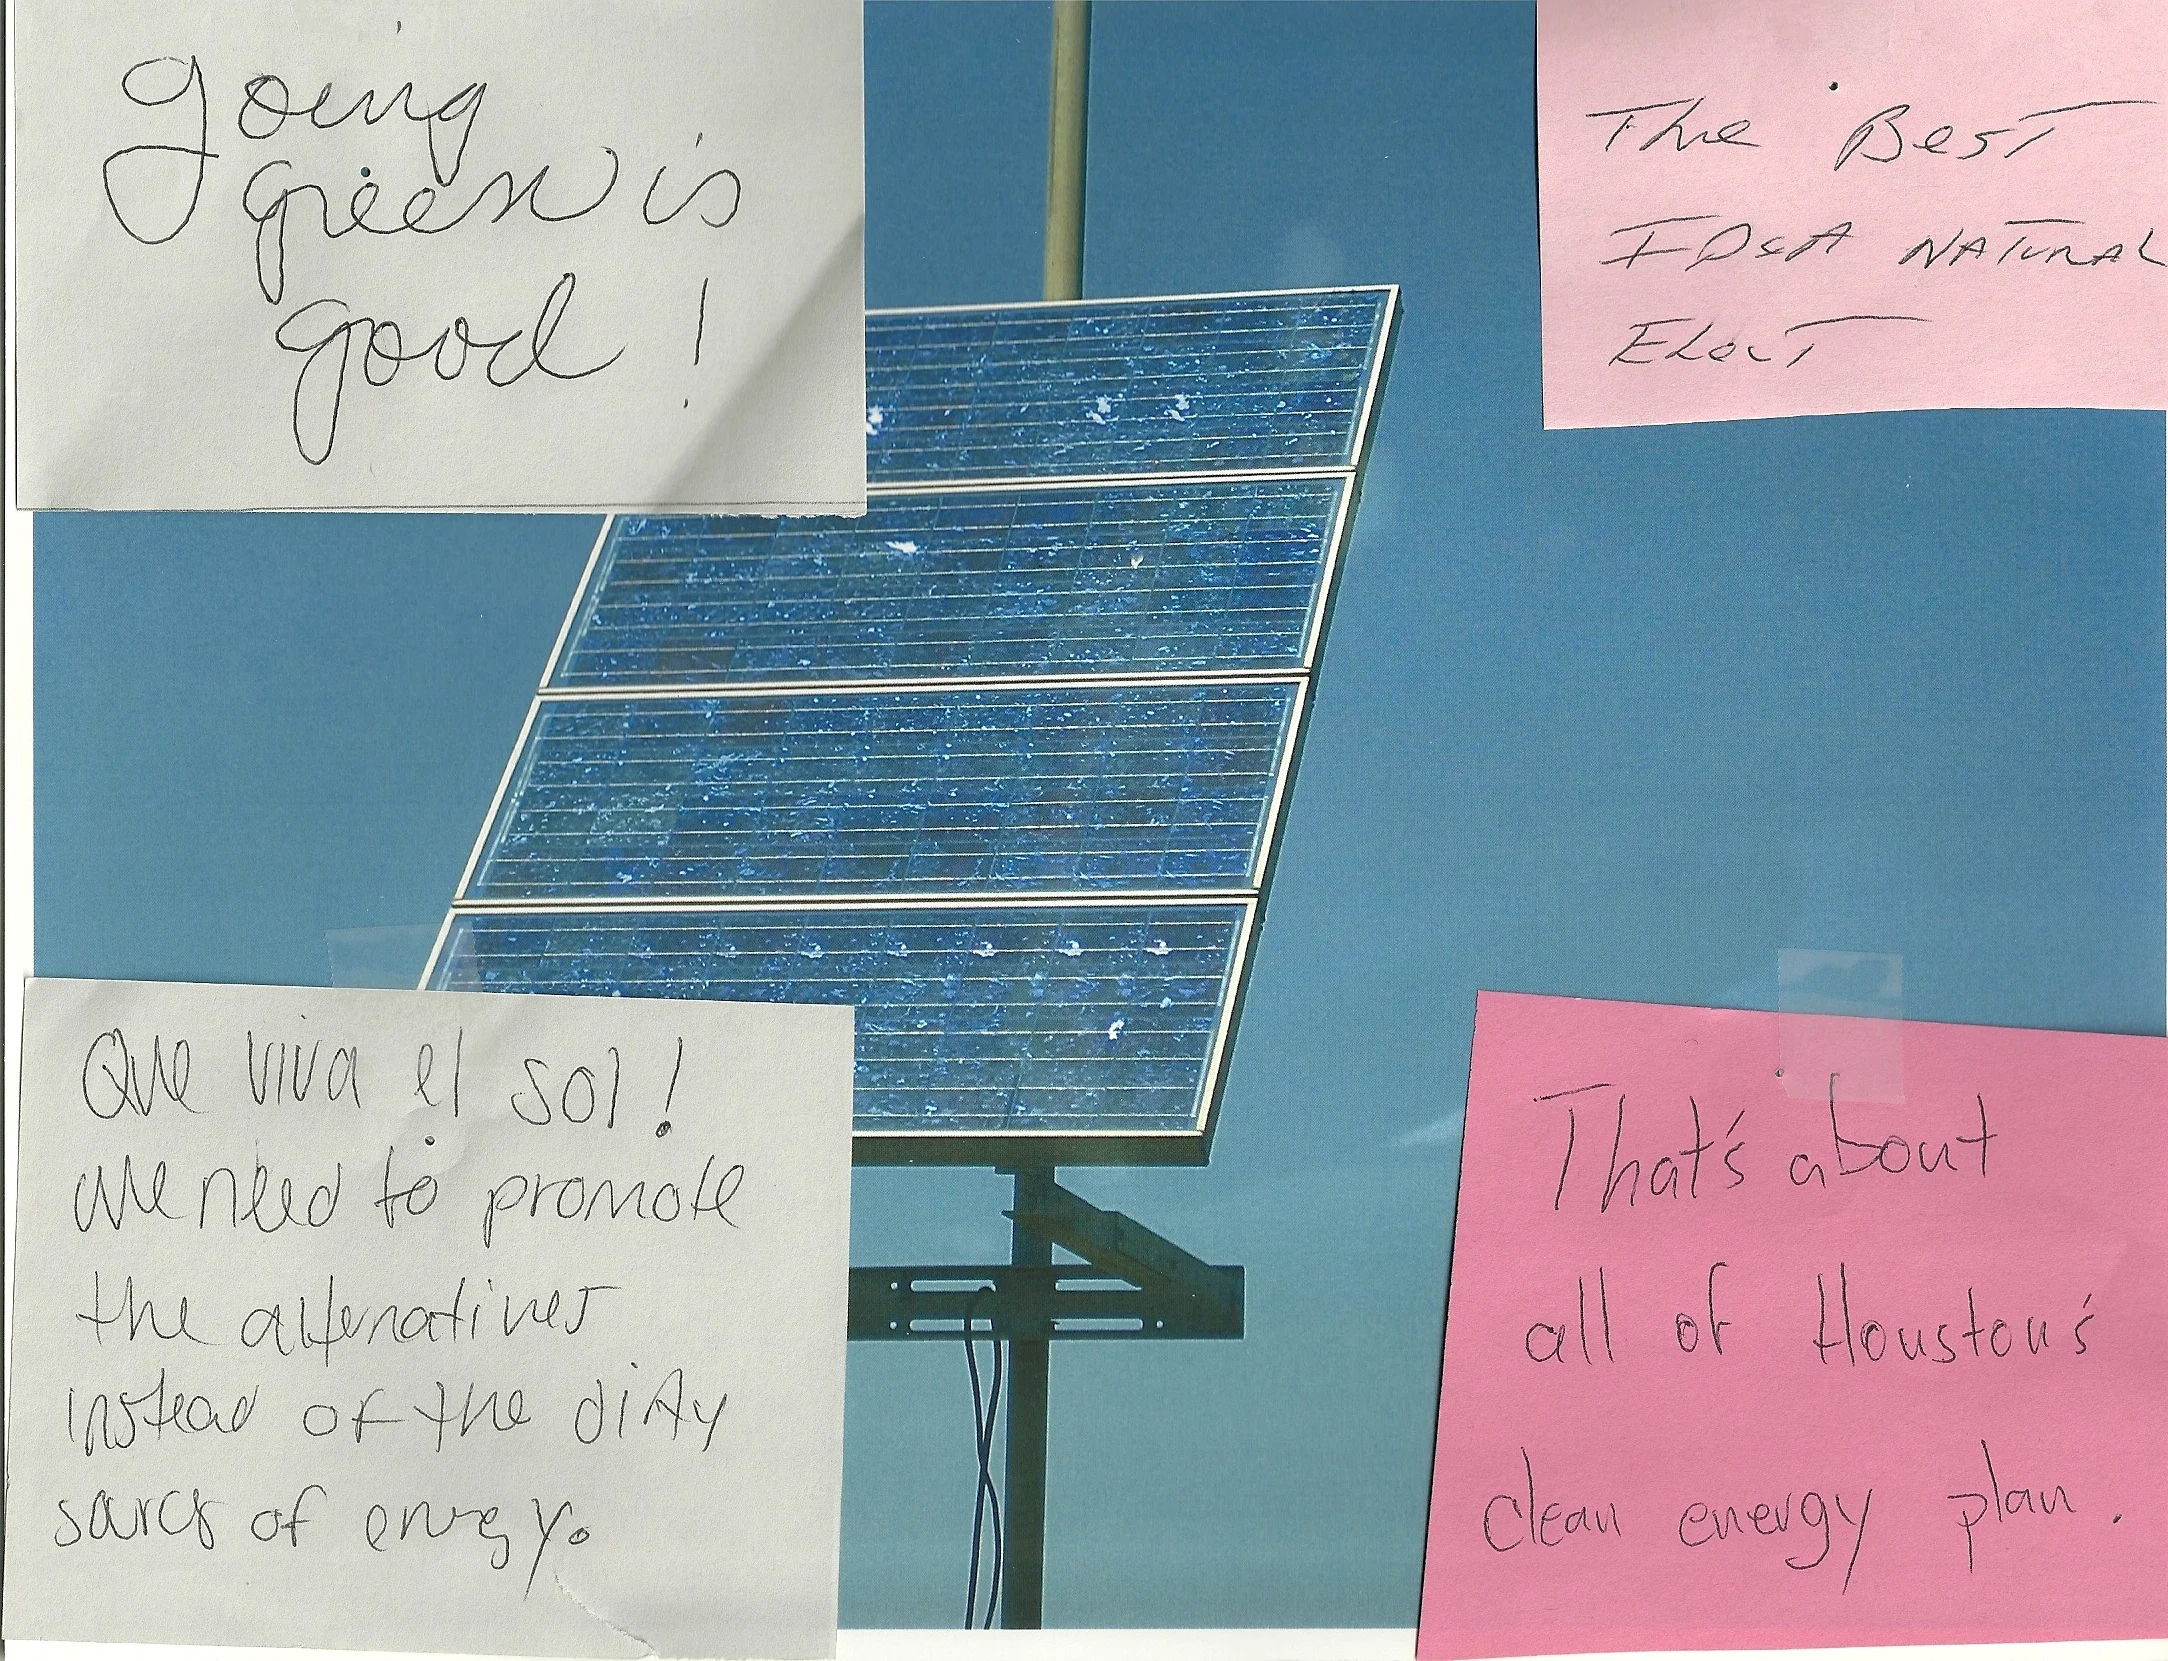 going
green is
good!
The Best
IDEA NATURAL
Elect
Que viva el sol!
We need to promote
the alternatives
instead of the dirty
sources of energy.
That's about
all of Houston's
clean energy plan.